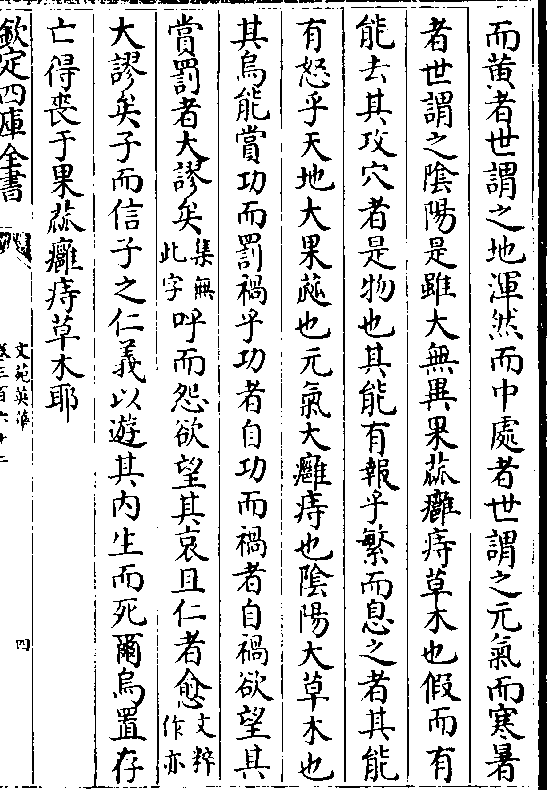 而黄者世謂之地渾然而中處者世謂之元氣而寒暑
者世謂之隂陽是雖大無異果蓏癰痔草木也假而有
能去其攻穴者是物也其能有報乎繁而息之者其能
有怒乎天地大果蓏也元氣大癰痔也隂陽大草木也
其烏能賞功而罰禍乎功者自功而禍者自禍欲望其
賞罰者大謬矣集無此字呼而怨欲望其哀且仁者愈文粹作亦
大謬矣子而信子之仁義以遊其内生而死爾烏置存
亡得丧于果蓏癰痔草木耶
欽定四庫全書
文苑英華
卷三百六十二
四